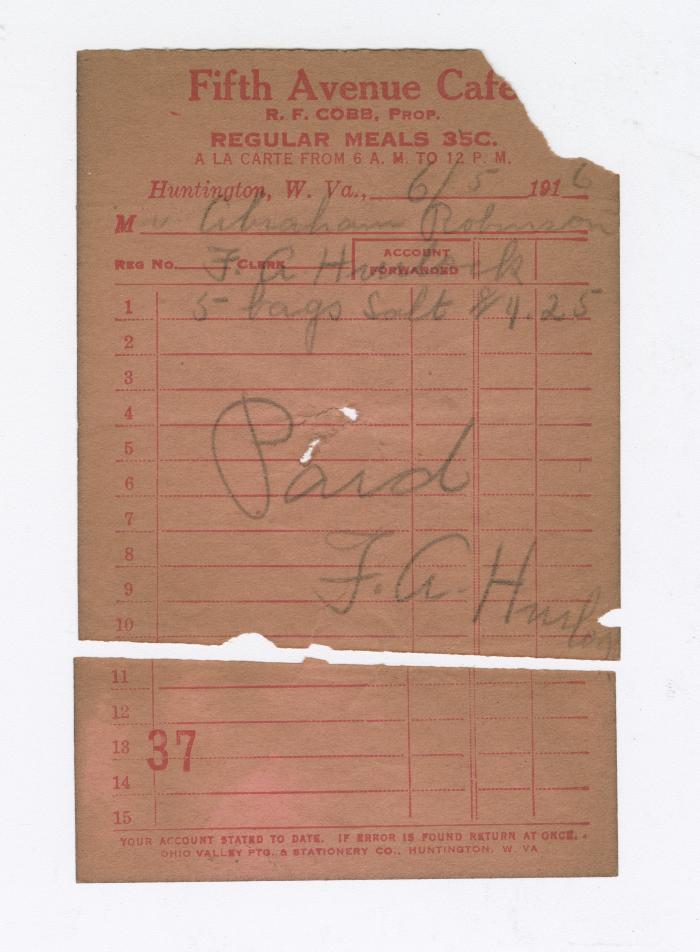 Fifth Avenue Cafe
R. F. COBB, PROP.
REGULAR MEALS 35C.
A LA CARTE FROM 6 A. M. TO 12 P. M.
Huntington, W. Va., 6/5 1916
M Abraham Robinson
REG NO. CLERK F. A ACCOUNT FORWARDED
1 5 bags Salt $4.25
2
3
4
5 Paid
6
7
8
9 F. A.
10
11
12
13 37
14
15
YOUR ACCOUNT STATED TO DATE. IF ERROR IS FOUND RETURN AT ONCE.
OHIO VALLEY PTG. & STATIONERY CO., HUNTINGTON, W. VA